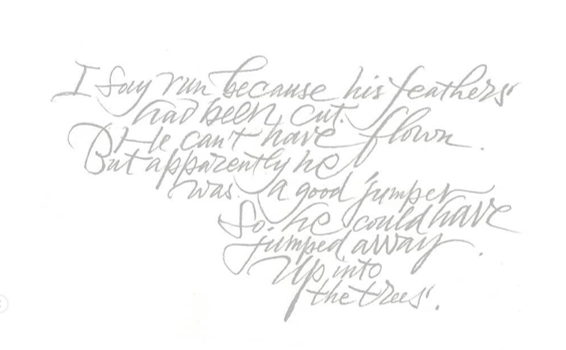 I say run because his feathers
had been cut.
He can't have flown.
But apparently he
was a good jumper
So he could have
jumped away.
Up into
the trees.